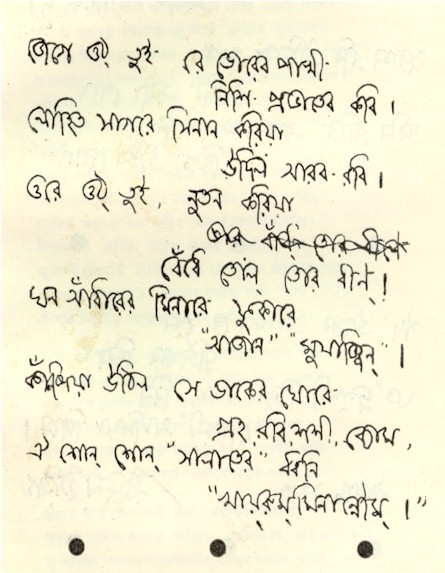 জেগে ওঠ্ তুই রে ভোরের পাখী
নিশি-প্রভাতের কবি।
লোহিত সাগরে সিনান করিয়া
উদিল আরব-রবি।
ওরে ওঠ্ তুই, নূতন করিয়া
বেঁধে তোল্ তোর বীণ্!
ঘন আঁধারের মিনারে ফুকারে
"আজান" "মুয়াজ্জিন্"।
কাঁপিয়া উঠিল সে ডাকের ঘোরে
গ্রহ, রবি, শশী, ব্যোম,
ঐ শোন্ শোন্ "সালাতের" ধ্বনি
"খায়রুম্‌মিনান্নৌম্।"